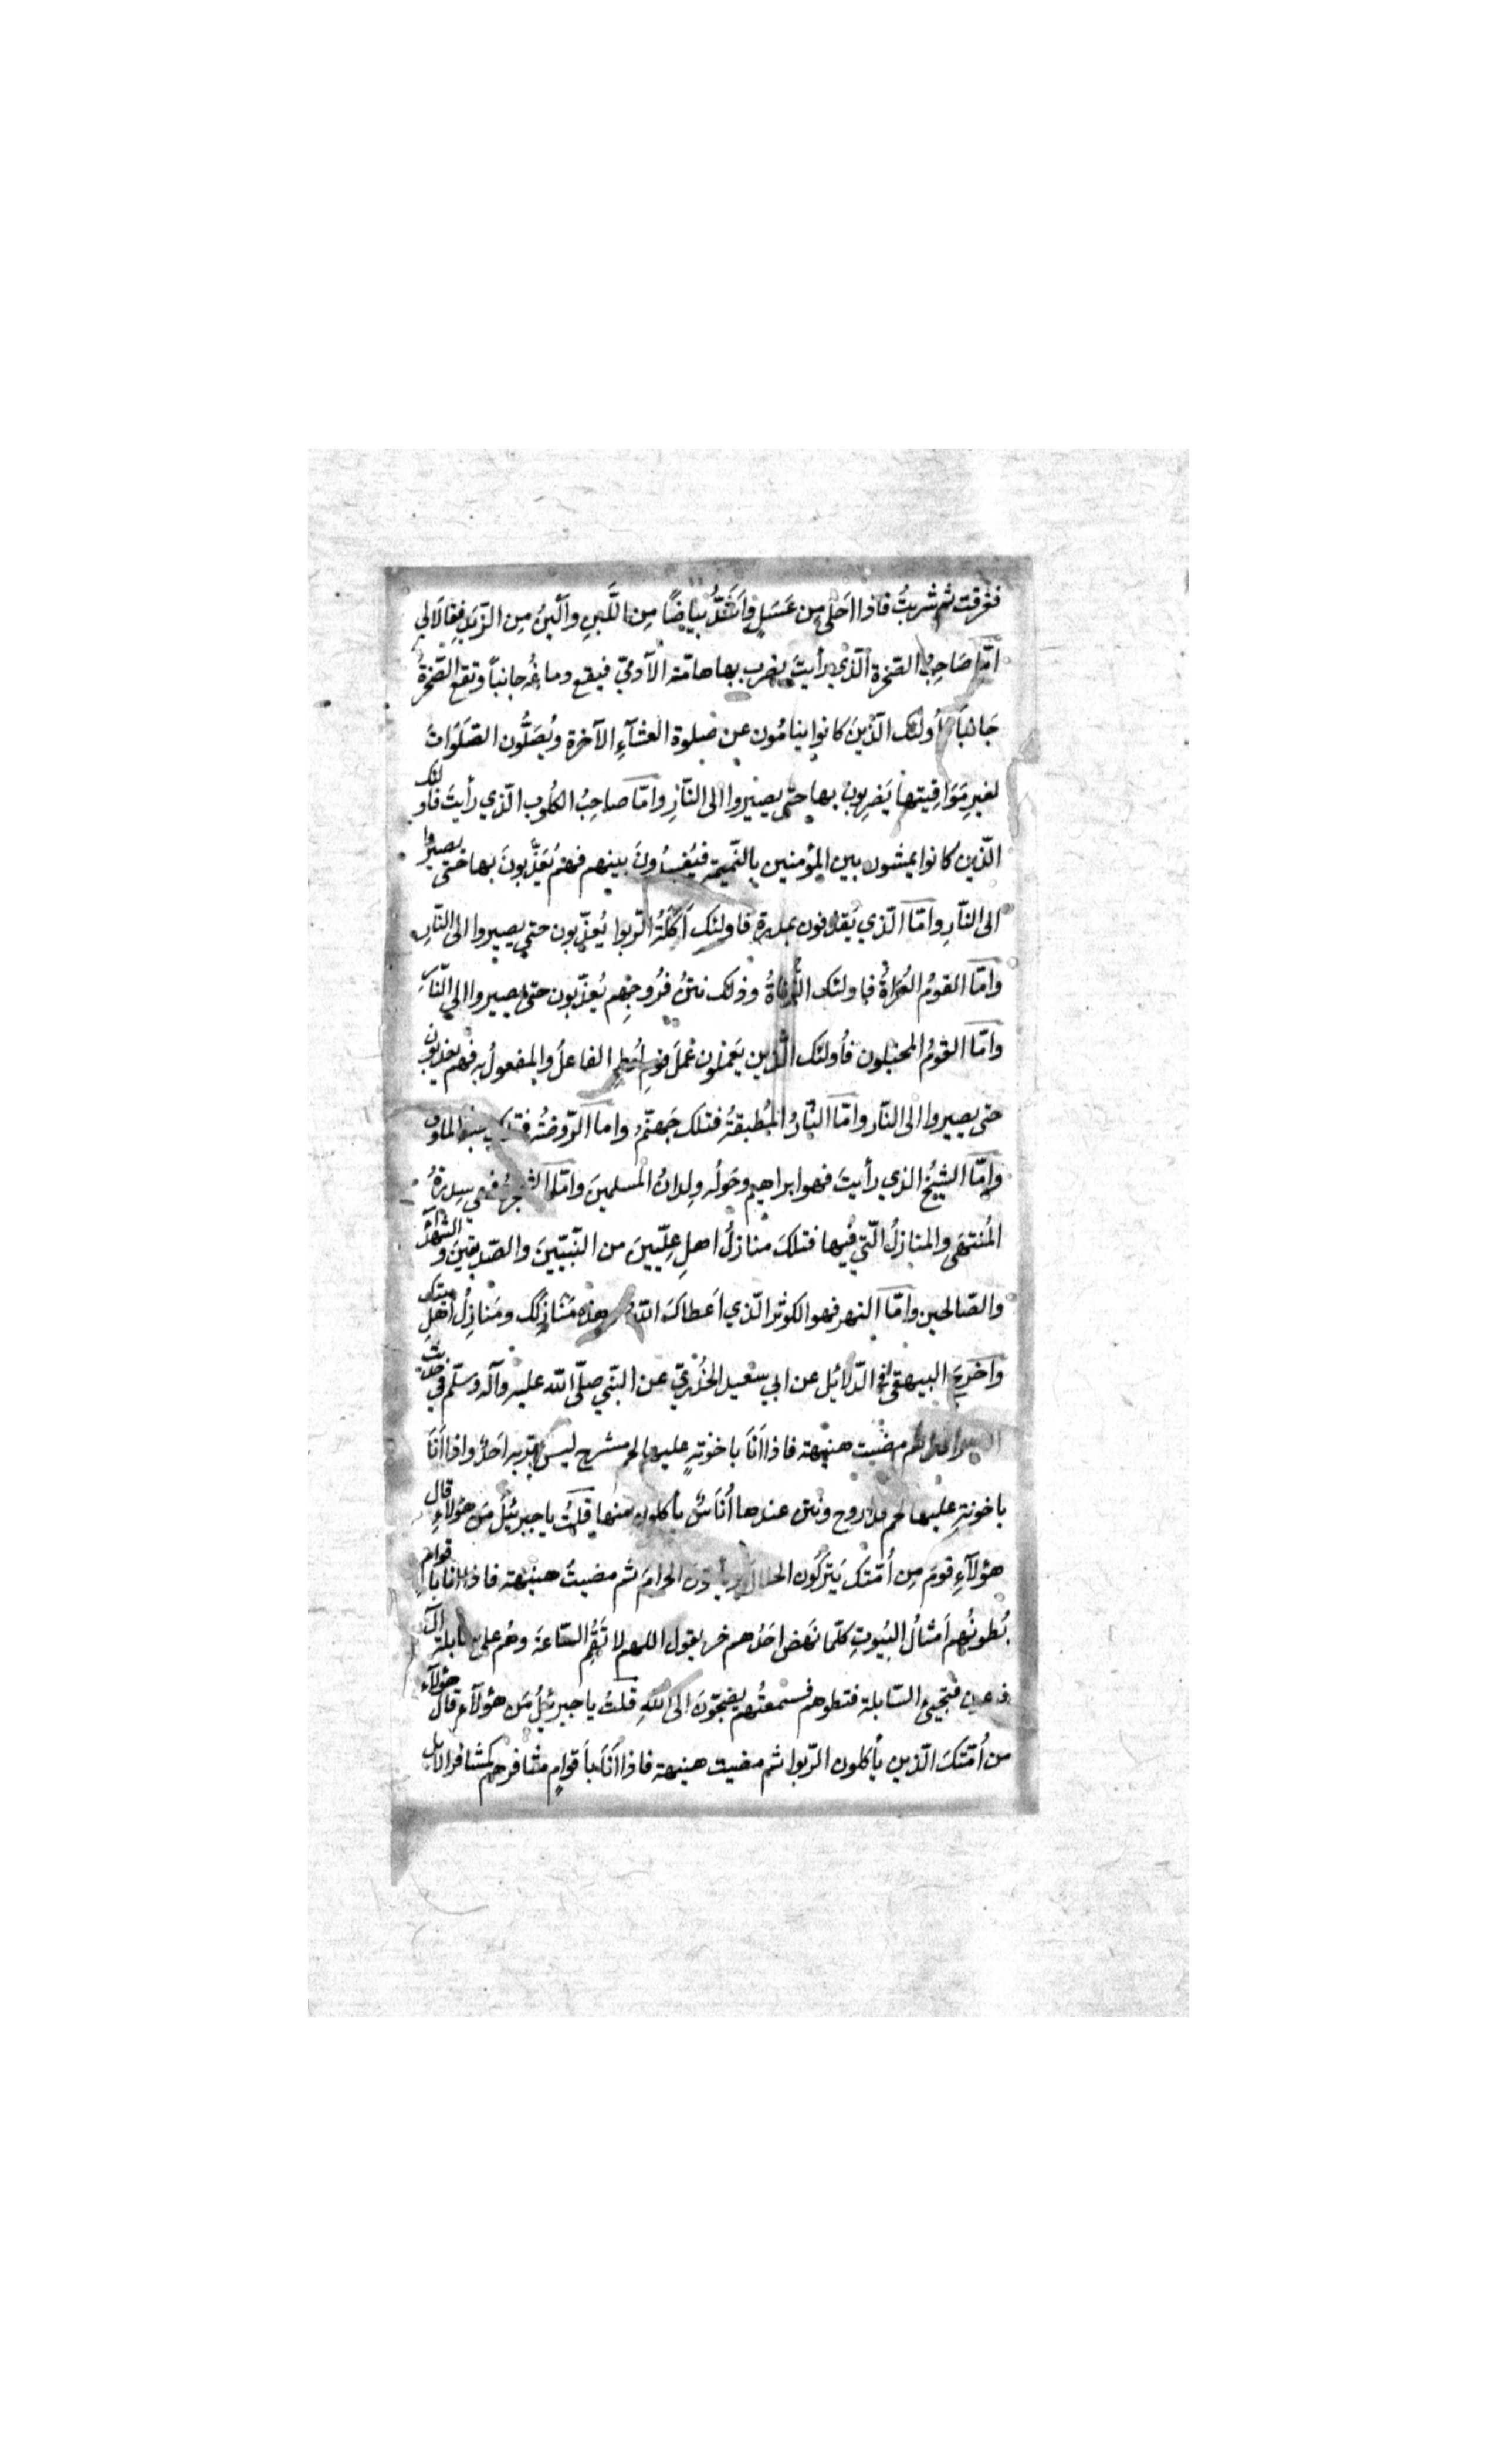 فغرفت ثم شربتُ فاذا احَلى مِن عَسَلٍ وَاَشَدُّ بيَاضًا مِن اللَّبنِ واَليَنُ مِن الزّبَدِ فقِالَا لي
امّا صَاحِبُ الصّخرة الّذي رأيتَ يضرب بها هامّته الآدميّ فيقع دماغُه جانباً وتقع الصّخرةُ
جَانباً أولئك الّذينَ كانوا ينامُون عن صلوة العشآءِ الآخرة ويُصَلُّون الصّلَوَاتَ
لغيرِ مَوَاقِيتها يَضرِبون بها حتى يصيروا الى النّارِ وامّا صاحِبُ الكلُوب الّذي رأيتَ فأولئك
الّذين كانوا يمشون بين المؤمنين بالنّميمة فيُفسِدُونَ بينهم فهُم يُعَذّبونَ بها حتى يصيروا
الى النّارِ وامّا الّذي يُقذفون بمدرة فاولئك اَكَلَةُ الرّبوا يُعذّبون حتى يصيروا الى النّارِ
وامّا القومُ العُراةُ فاولئك الزُّناةُ وذلك نتنُ فرُوجِهم يُعذّبون حتى يصيروا الى النّارِ
وامّا القومُ المخبلون فأولئك الّذين يَعمَلون عَملَ قومِ لوطٍ الفاعلُ والمفعولُ به فهم يعذبون
حتى يصيروا الى النّار وامّا النّارُ المُطبقةُ فتلك جَهنّمُ واما الرّوضةُ فتلك جنة الماوى
وامّا الشيخُ الذي رأيتَ فهو ابراهيم وحَولُه ولِدانُ المسلمينَ وامّا الشجرةُ فهي سِدرةُ
المُنتهَى والمنازلُ الّتي فيها فتلكَ منازلُ اهلِ عِلّيّينَ من النّبيّينَ والصّدّيقينَ والشهدآءِ
والصّالحين وامّا النهر فهو الكوثر الّذي اَعطاكَ اللهُ وهذه مَنَازِلُك ومَنازِلُ اَهلِ بيتك
واَخرجَ البيهقى في الدّلائل عن ابي سعيد الخُدريّ عن النبّي صلّى الله عليه وآله وسلّم في حديث
ثم مضيت هنيهة فاذا اَنَا باخونةٍ عليها لحم مشرح ليس يقربه احَدٌ واذا اَنَا
باخونةٍ عليها لحم قد اروح ونتن عندها أُنَاسٌ يأكلون منها قلتُ يا جبرئيلُ مَن هؤلآءِ قال
هؤلآءِ قومٌ مِن أُمّتك يَترُكون الحلالَ ويأتون الحرامَ ثم مضيتُ هنيهة فاذا انا باقوامٍ
بُطونُهم اَمثالُ البُيوتِ كلّما نهَض احَدُهم خر يقول اللهم لا تُقِم السّاعةَ وهُم على سابلة آل
فرعون فتجيئ السّابلة فتطوهم فسمعتُهم يضجّونَ الى اللهِ قلتُ يا جبرئيلُ مَن هؤلآءِ قال هؤلآء
من أُمّتكَ الّذين يأكلون الرّبوا ثم مضيت هنيهة فاذا اَنَا باَقوامٍ مشافرهم كمشافر الابل